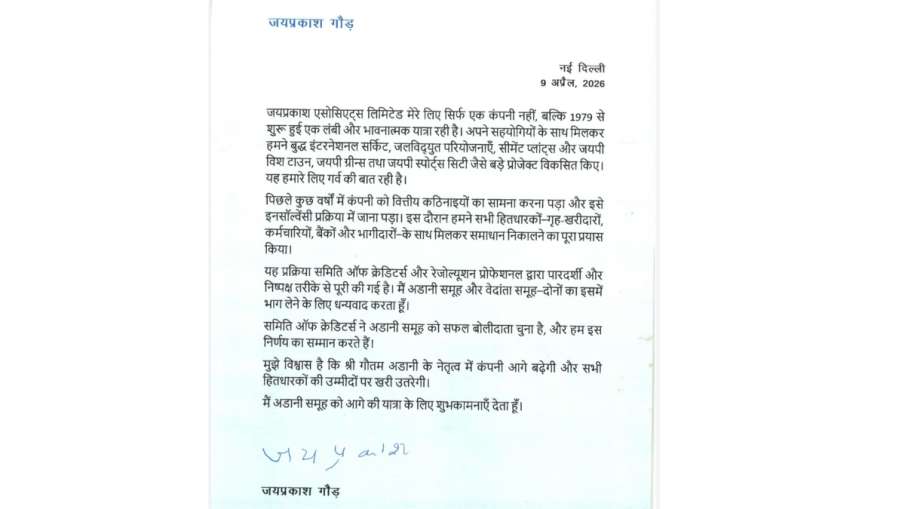 जयप्रकाश गौड़
नई दिल्ली
9 अप्रैल, 2026
जयप्रकाश एसोसिएट्स लिमिटेड मेरे लिए सिर्फ एक कंपनी नहीं, बल्कि 1979 से
शुरू हुई एक लंबी और भावनात्मक यात्रा रही है। अपने सहयोगियों के साथ मिलकर
हमने बुद्ध इंटरनेशनल सर्किट, जलविद्युत परियोजनाएँ, सीमेंट प्लांट्स और जयपी
विश टाउन, जयपी ग्रीन्स तथा जयपी स्पोर्ट्स सिटी जैसे बड़े प्रोजेक्ट विकसित किए।
यह हमारे लिए गर्व की बात रही है।
पिछले कुछ वर्षों में कंपनी को वित्तीय कठिनाइयों का सामना करना पड़ा और इसे
इनसॉल्वेंसी प्रक्रिया में जाना पड़ा। इस दौरान हमने सभी हितधारकों–गृह-खरीदारों,
कर्मचारियों, बैंकों और भागीदारों–के साथ मिलकर समाधान निकालने का पूरा प्रयास
किया।
यह प्रक्रिया समिति ऑफ क्रेडिटर्स और रेजोल्यूशन प्रोफेशनल द्वारा पारदर्शी और
निष्पक्ष तरीके से पूरी की गई है। मैं अडानी समूह और वेदांता समूह–दोनों का इसमें
भाग लेने के लिए धन्यवाद करता हूँ।
समिति ऑफ क्रेडिटर्स ने अडानी समूह को सफल बोलीदाता चुना है, और हम इस
निर्णय का सम्मान करते हैं।
मुझे विश्वास है कि श्री गौतम अडानी के नेतृत्व में कंपनी आगे बढ़ेगी और सभी
हितधारकों की उम्मीदों पर खरी उतरेगी।
मैं अडानी समूह को आगे की यात्रा के लिए शुभकामनाएँ देता हूँ।
जयप्रकाश
जयप्रकाश गौड़